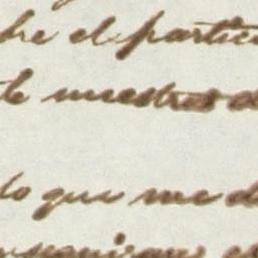 bre el particu
te nuestros d
lo que me d